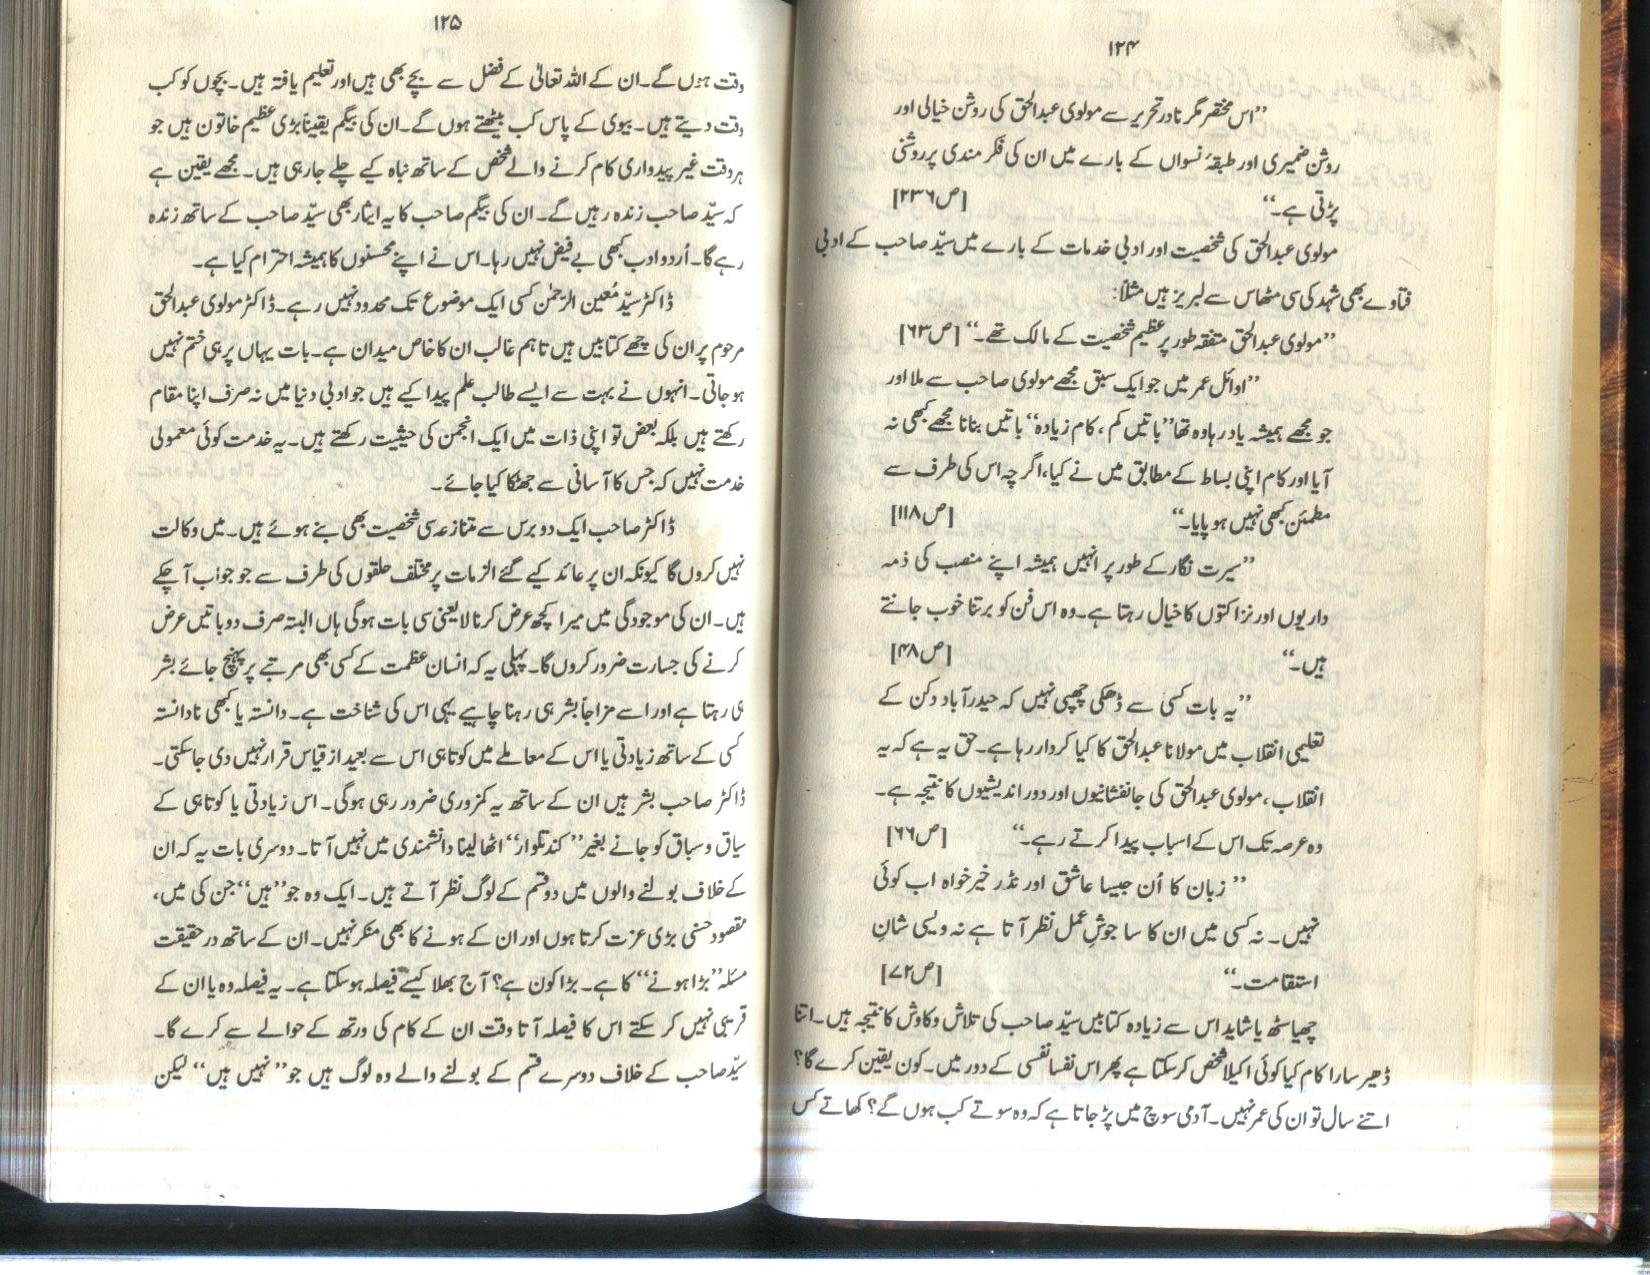 ۱۲۴
”اس مختصر مگر نادر تحریر سے مولوی عبدالحق کی روشن خیالی اور
روشن ضمیری اور طبقۂ نسواں کے بارے میں ان کی فکر مندی پر روشنی
پڑتی ہے۔“ [ص۲۳۶]
مولوی عبدالحق کی شخصیت اور ادبی خدمات کے بارے میں سیّد صاحب کے ادبی
فتاوے بھی شہد کی سی مٹھاس سے لبریز ہیں مثلاً:
”مولوی عبدالحق متفقہ طور پر عظیم شخصیت کے مالک تھے۔“ [ص۶۳]
”اوائل عمر میں جو ایک سبق مجھے مولوی صاحب سے ملا اور
جو مجھے ہمیشہ یاد رہا وہ تھا ”باتیں کم، کام زیادہ“ باتیں بنانا مجھے کبھی نہ
آیا اور کام اپنی بساط کے مطابق میں نے کیا، اگرچہ اس کی طرف سے
مطمئن کبھی نہیں ہو پایا۔“ [ص۱۱۸]
”سیرت نگار کے طور پر انہیں ہمیشہ اپنے منصب کی ذمہ
داریوں اور نزاکتوں کا خیال رہتا ہے۔ وہ اس فن کو برتنا خوب جانتے
ہیں۔“ [ص۴۸]
”یہ بات کسی سے ڈھکی چھپی نہیں کہ حیدرآباد دکن کے
تعلیمی انقلاب میں مولانا عبدالحق کا کیا کردار رہا ہے۔ حق یہ ہے کہ یہ
انقلاب، مولوی عبدالحق کی جانفشانیوں اور دور اندیشیوں کا نتیجہ ہے۔
وہ عرصہ تک اس کے اسباب پیدا کرتے رہے۔“ [ص۶۶]
”زبان کا اُن جیسا عاشق اور نڈر خیر خواہ اب کوئی
نہیں۔ نہ کسی میں ان کا سا جوشِ عمل نظر آتا ہے نہ ویسی شانِ
استقامت۔“ [ص۷۲]
چھیاسٹھ یا شاید اس سے زیادہ کتابیں سیّد صاحب کی تلاش و کاوش کا نتیجہ ہیں۔ اتنا
ڈھیر سارا کام کیا کوئی اکیلا شخص کر سکتا ہے پھر اس نفسا نفسی کے دور میں۔ کون یقین کرے گا؟
اتنے سال تو ان کی عمر نہیں۔ آدمی سوچ میں پڑ جاتا ہے کہ وہ سوتے کب ہوں گے؟ کھاتے کس
۱۲۵
وقت ہوں گے۔ ان کے اللہ تعالیٰ کے فضل سے بچے بھی ہیں اور تعلیم یافتہ ہیں۔ بچوں کو کب
وقت دیتے ہیں۔ بیوی کے پاس کب بیٹھتے ہوں گے۔ ان کی بیگم یقیناً بڑی عظیم خاتون ہیں جو
ہر وقت غیر پیداواری کام کرنے والے شخص کے ساتھ نباہ کیے چلے جا رہی ہیں۔ مجھے یقین ہے
کہ سیّد صاحب زندہ رہیں گے۔ ان کی بیگم صاحب کا یہ ایثار بھی سیّد صاحب کے ساتھ زندہ
رہے گا۔ اُردو ادب کبھی بے فیض نہیں رہا۔ اس نے اپنے محسنوں کا ہمیشہ احترام کیا ہے۔
ڈاکٹر سیّد مُعین الرّحمٰن کسی ایک موضوع تک محدود نہیں رہے۔ ڈاکٹر مولوی عبدالحق
مرحوم پر ان کی چھے کتابیں ہیں تاہم غالب ان کا خاص میدان ہے۔ بات یہاں پر ہی ختم نہیں
ہو جاتی۔ انہوں نے بہت سے ایسے طالب علم پیدا کیے ہیں جو ادبی دنیا میں نہ صرف اپنا مقام
رکھتے ہیں بلکہ بعض تو اپنی ذات میں ایک انجمن کی حیثیت رکھتے ہیں۔ یہ خدمت کوئی معمولی
خدمت نہیں کہ جس کا آسانی سے جھٹکا کیا جائے۔
ڈاکٹر صاحب ایک دو برس سے متنازعہ سی شخصیت بھی بنے ہوئے ہیں۔ میں وکالت
نہیں کروں گا کیونکہ ان پر عائد کیے گئے الزمات پر مختلف حلقوں کی طرف سے جو جواب آ چکے
ہیں۔ ان کی موجودگی میں میرا کچھ عرض کرنا لایعنی سی بات ہوگی ہاں البتہ صرف دو باتیں عرض
کرنے کی جسارت ضرور کروں گا۔ پہلی یہ کہ انسان عظمت کے کسی بھی مرتبے پر پہنچ جائے بشر
ہی رہتا ہے اور اسے مزاجاً بشر ہی رہنا چاہیے یہی اس کی شناخت ہے۔ دانستہ یا کبھی نادانستہ
کسی کے ساتھ زیادتی یا اس کے معاملے میں کوتاہی اس سے بعید از قیاس قرار نہیں دی جا سکتی۔
ڈاکٹر صاحب بشر ہیں ان کے ساتھ یہ کمزوری ضرور رہی ہوگی۔ اس زیادتی یا کوتاہی کے
سیاق و سباق کو جانے بغیر ”کند تلوار“ اٹھا لینا دانشمندی میں نہیں آتا۔ دوسری بات یہ کہ ان
کے خلاف بولنے والوں میں دو قسم کے لوگ نظر آتے ہیں۔ ایک وہ جو ”ہیں“ جن کی میں،
مقصود حسنی بڑی عزت کرتا ہوں اور ان کے ہونے کا بھی منکر نہیں۔ ان کے ساتھ درحقیقت
مسئلہ ”بڑا ہونے“ کا ہے۔ بڑا کون ہے؟ آج بھلا کیسے فیصلہ ہو سکتا ہے۔ یہ فیصلہ وہ یا ان کے
قریبی نہیں کر سکتے اس کا فیصلہ آتا وقت ان کے کام کی ورتھ کے حوالے سے کرے گا۔
سیّد صاحب کے خلاف دوسرے قسم کے بولنے والے وہ لوگ ہیں جو ”نہیں ہیں“ لیکن